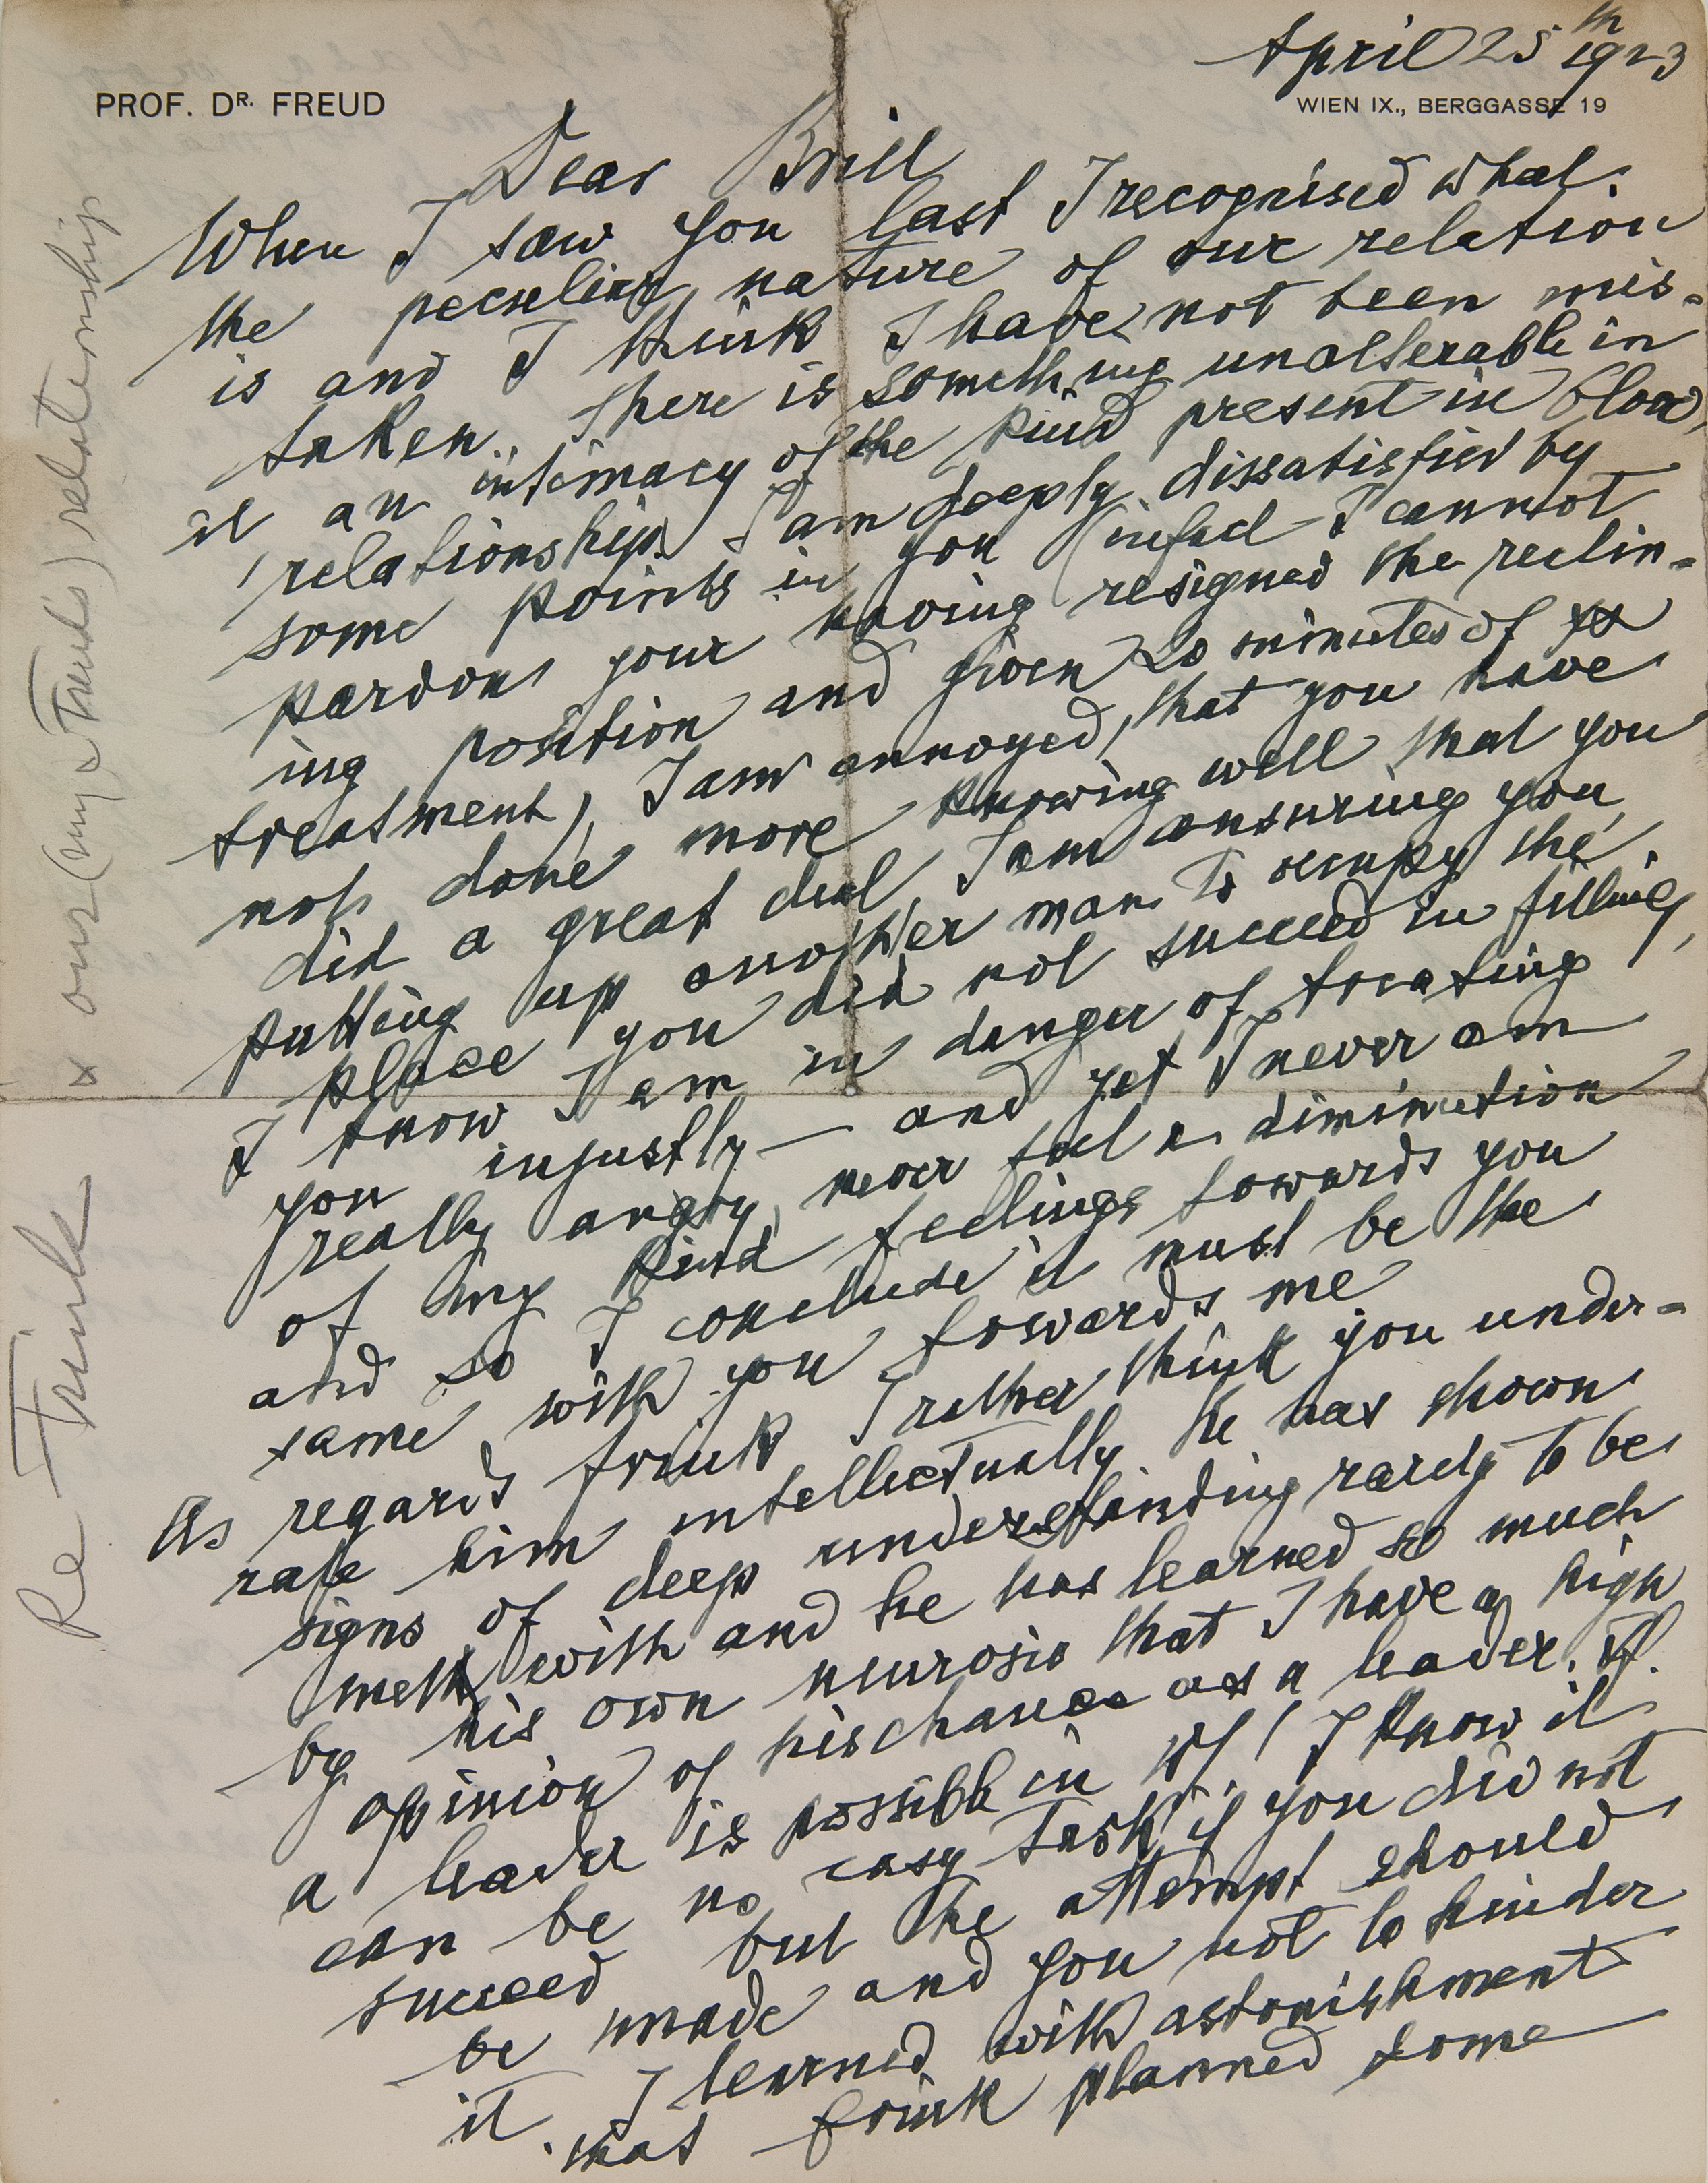 April 25th 1923
PROF. DR. FREUD
WIEN IX., BERGGASSE 19
Dear Brill
When I saw you last I recognised what
the peculiar nature of our relation
is and I think I have not been mis-
taken. There is something unalterable in
it an intimacy of the kind present in blood,
relationship. I am deeply dissatisfied by
some points in you (infact I cannot
pardon your having resigned the reclin-
ing position and given 20 minutes of
treatment), I am annoyed, that you have
not done more knowing well that you
did a great deal, I am censuring you
putting up another man to occupy the
place you did not succeed in filling,
I know I am in danger of treating
you injustly — and yet I never am
really angry, never feel a diminution
of my kind feelings towards you
and so I conclude it must be the
same with you towards me
As regards Frink I rather think you under-
rate him intellectually. He has shown
signs of deep understanding rarely to be
mett with and he has learned so much
by his own neurosis that I have a high
opinion of his chance as a leader, if
a leader is possible in NY! I know it
can be no easy task if you did not
succeed but the attempt should
be made and you not to hinder
it. I learned with astonishment
that Frink planned some
x our (my - Freud's) relationship
Re Frink